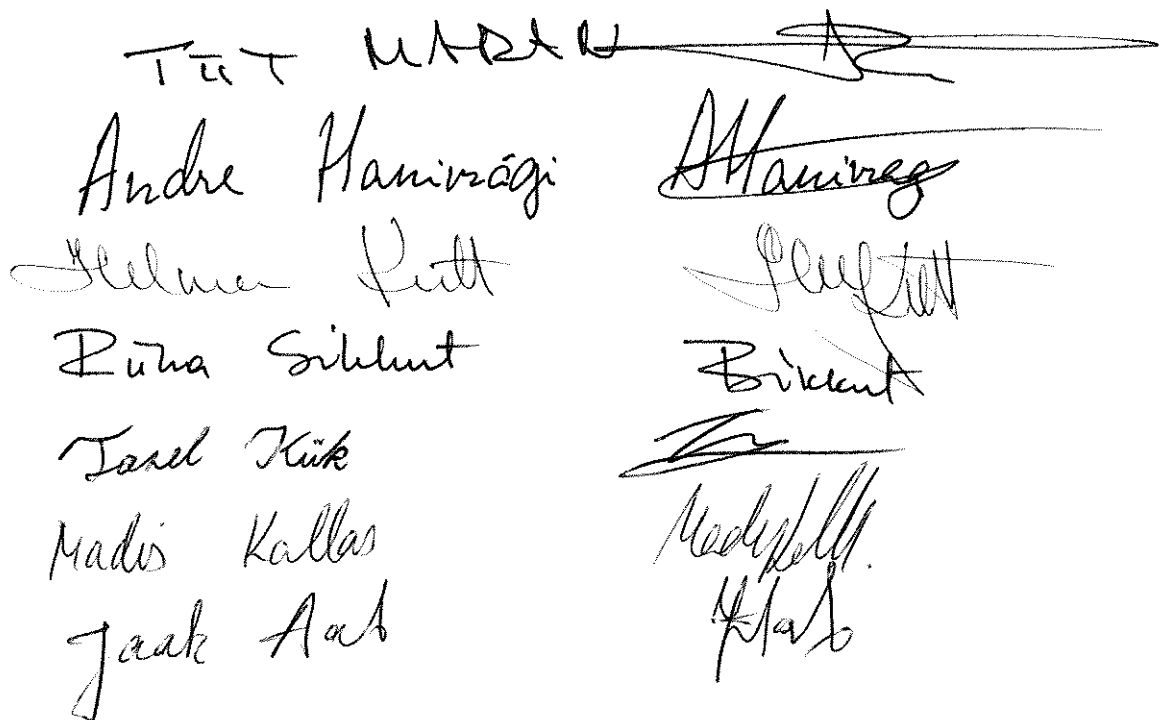 TIIT MARAN
Andre Hanimägi AHanimäg
Helmen Kütt
Riina Sikkut RSikkut
Tanel Kiik
Madis Kallas
Jaak Aab JAab